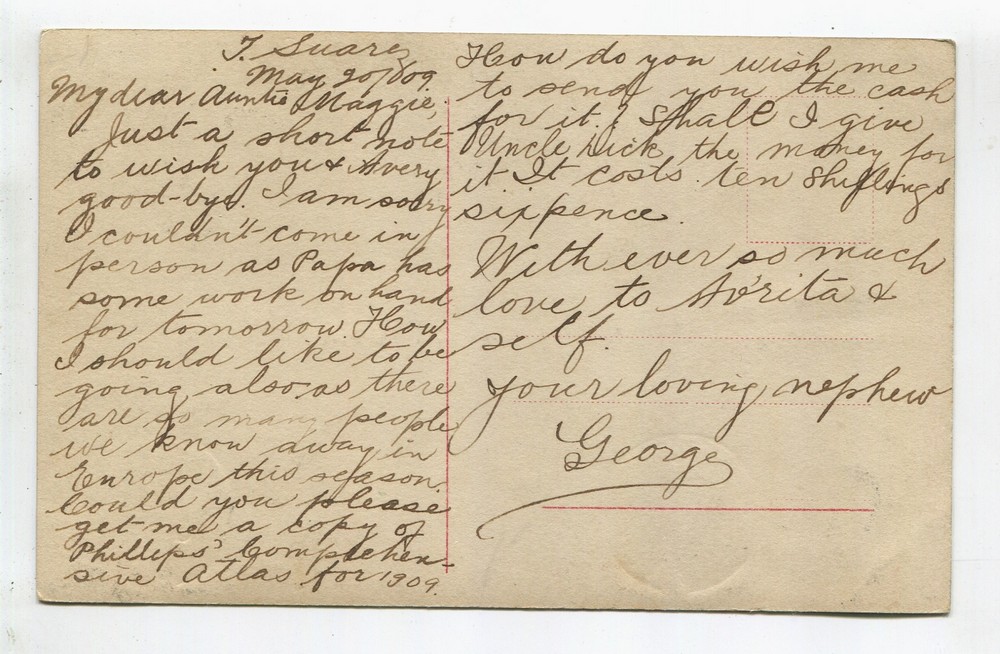 T. Suarez
May 20/09.
My dear Auntie Maggie,
Just a short note
to wish you & Avery
good-bye. I am sorry
I couldn't come in
person as Papa has
some work on hand
for tomorrow. How
I should like to be
going also as there
are so many people
we know away in
Europe this season.
Could you please
get me a copy of
Phillips' Comprehen-
sive Atlas for 1909.
How do you wish me
to send you the cash
for it? Shall I give
Uncle Dick the money for
it. It costs ten shillings
sixpence.
With ever so much
love to &
self.
your loving nephew
George